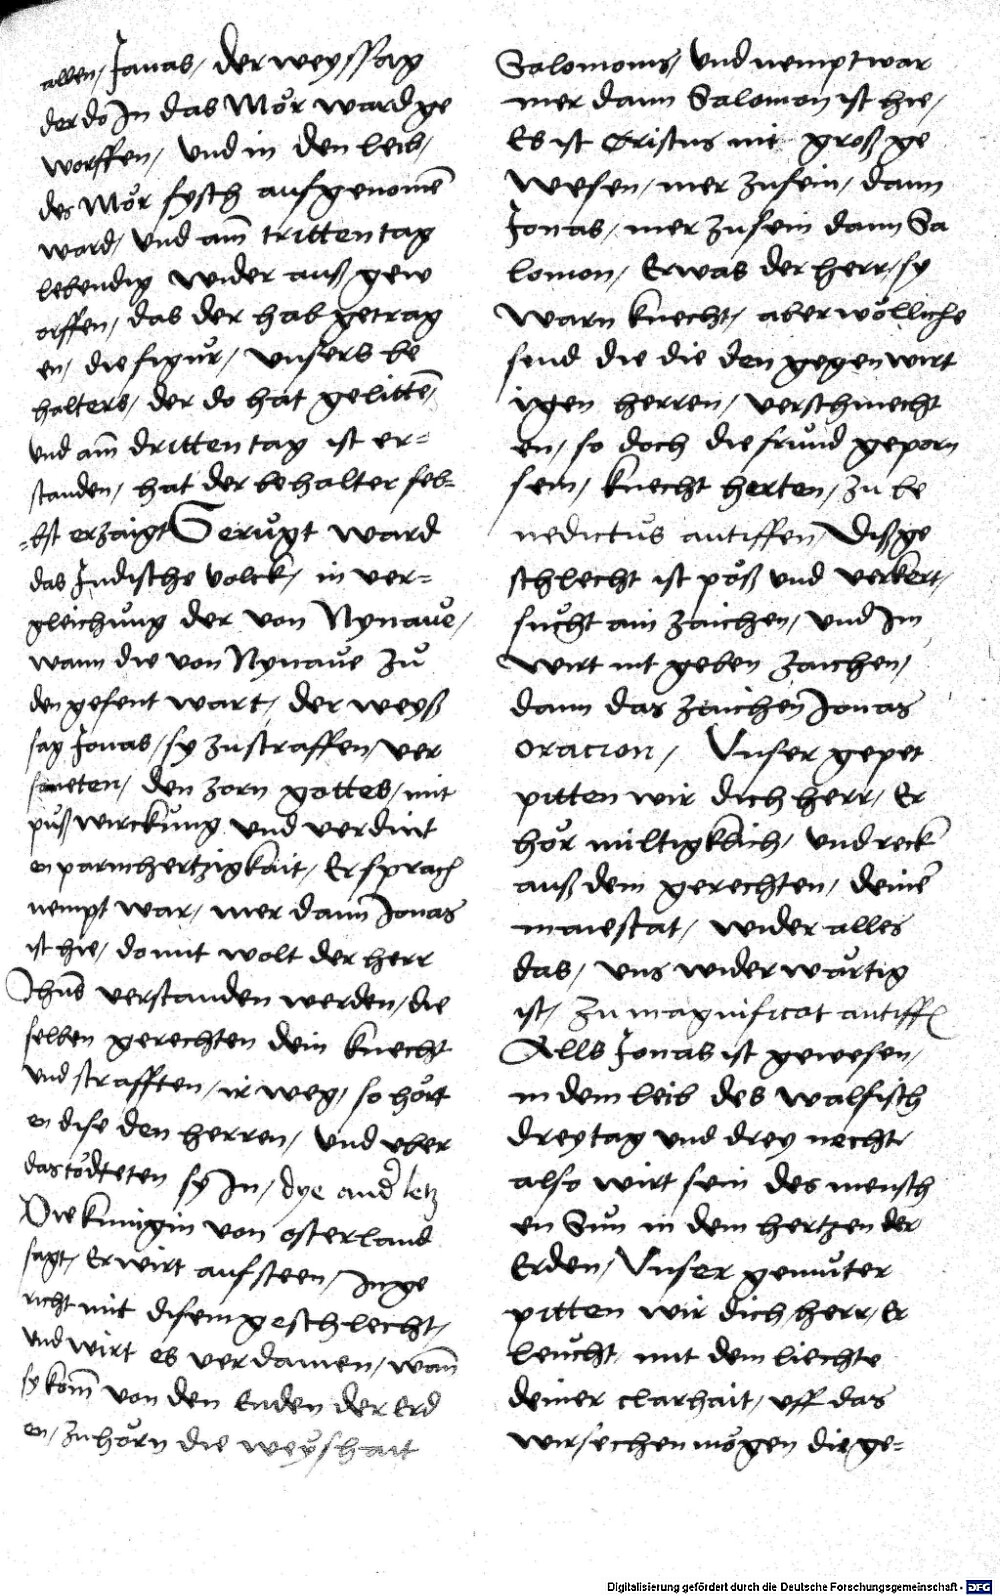 allen, Jonas, der weyssag
der do In das Mör ward ge
worffen, vnd in den leib,
des Mör fysch aufgenomē
ward, vnd am̄ tritten tag
lebendig wider auß gew
orffen, das der hab getrag
en, die figůr, vnsers be
halters, der do hat gelittē,
vnd am̄ dritten tag ist er=
standen, hat der behalter seb=
=bst erzaigt Gerůgt ward
das Jndische volck, in ver=
gleichůng der von Nynaůe,
wann die von Nynaůe zů
den gesent wart, der weyß
sag Jonas, sy zu straffen, ver
soneten, den zorn gottes, mit
půß wirckůng vnd verdint
en parmhertzigkait, Er sprach
nempt war, mer dann Jonas
ist hie, domit wolt der herr
Jhūs verstanden werden, die
selben gerechten dein knecht
vnd strafften, ir weg, so hört
en dise den herren, vnd vber
das tödteten sy In, dye and letz
Die kunigin von osterland
sagt, Er wirt aufsteen, In ge
richt mit disem geschlecht,
vnd wirt es verdamen, wan̄
sy kom̄ von den Enden der Erd
en, zu hörn die weyshait
Salomonis, vnd nempt war
mer dann Salomon ist hie,
Es ist Cristus nit groß ge
wesen, mer zusein, dann
Jonas, mer zusein dann Sa
lomon, Er was der herr, sy
warn knecht, aber wölliche
send die die den gegenwirt
igen herren, verschmecht
en, so doch die frůnd geporn
sein, knecht herten, zu be
nedictůs antiffen, Diß ge
schlecht ist pöß vnd verkert,
sůcht ain zaichen, vnd Im
wirt nit geben zaichen,
dann das zaichen Jonas
oracion, Vnser gepet
pitten wir dich herr, Er
hör miltigklich, vnd reck
auß dem gerechten, deinē
maiestat, wider alles
das, vns widerwärtig
ist, zu magnificat antiff
Alls Jonas ist gewesen,
in dem leib des walfisch
drey tag vnd drey necht,
also wirt sein des mensch
en Sůn in dem hertzen der
Erden, Vnser gemůter
pitten wir dich, herr, Er
leůcht mit dem liechte
deiner clarhait, vff das
wir sechen mögen die ge=
Digitalisierung gefördert durch die Deutsche Forschungsgemeinschaft - DFG